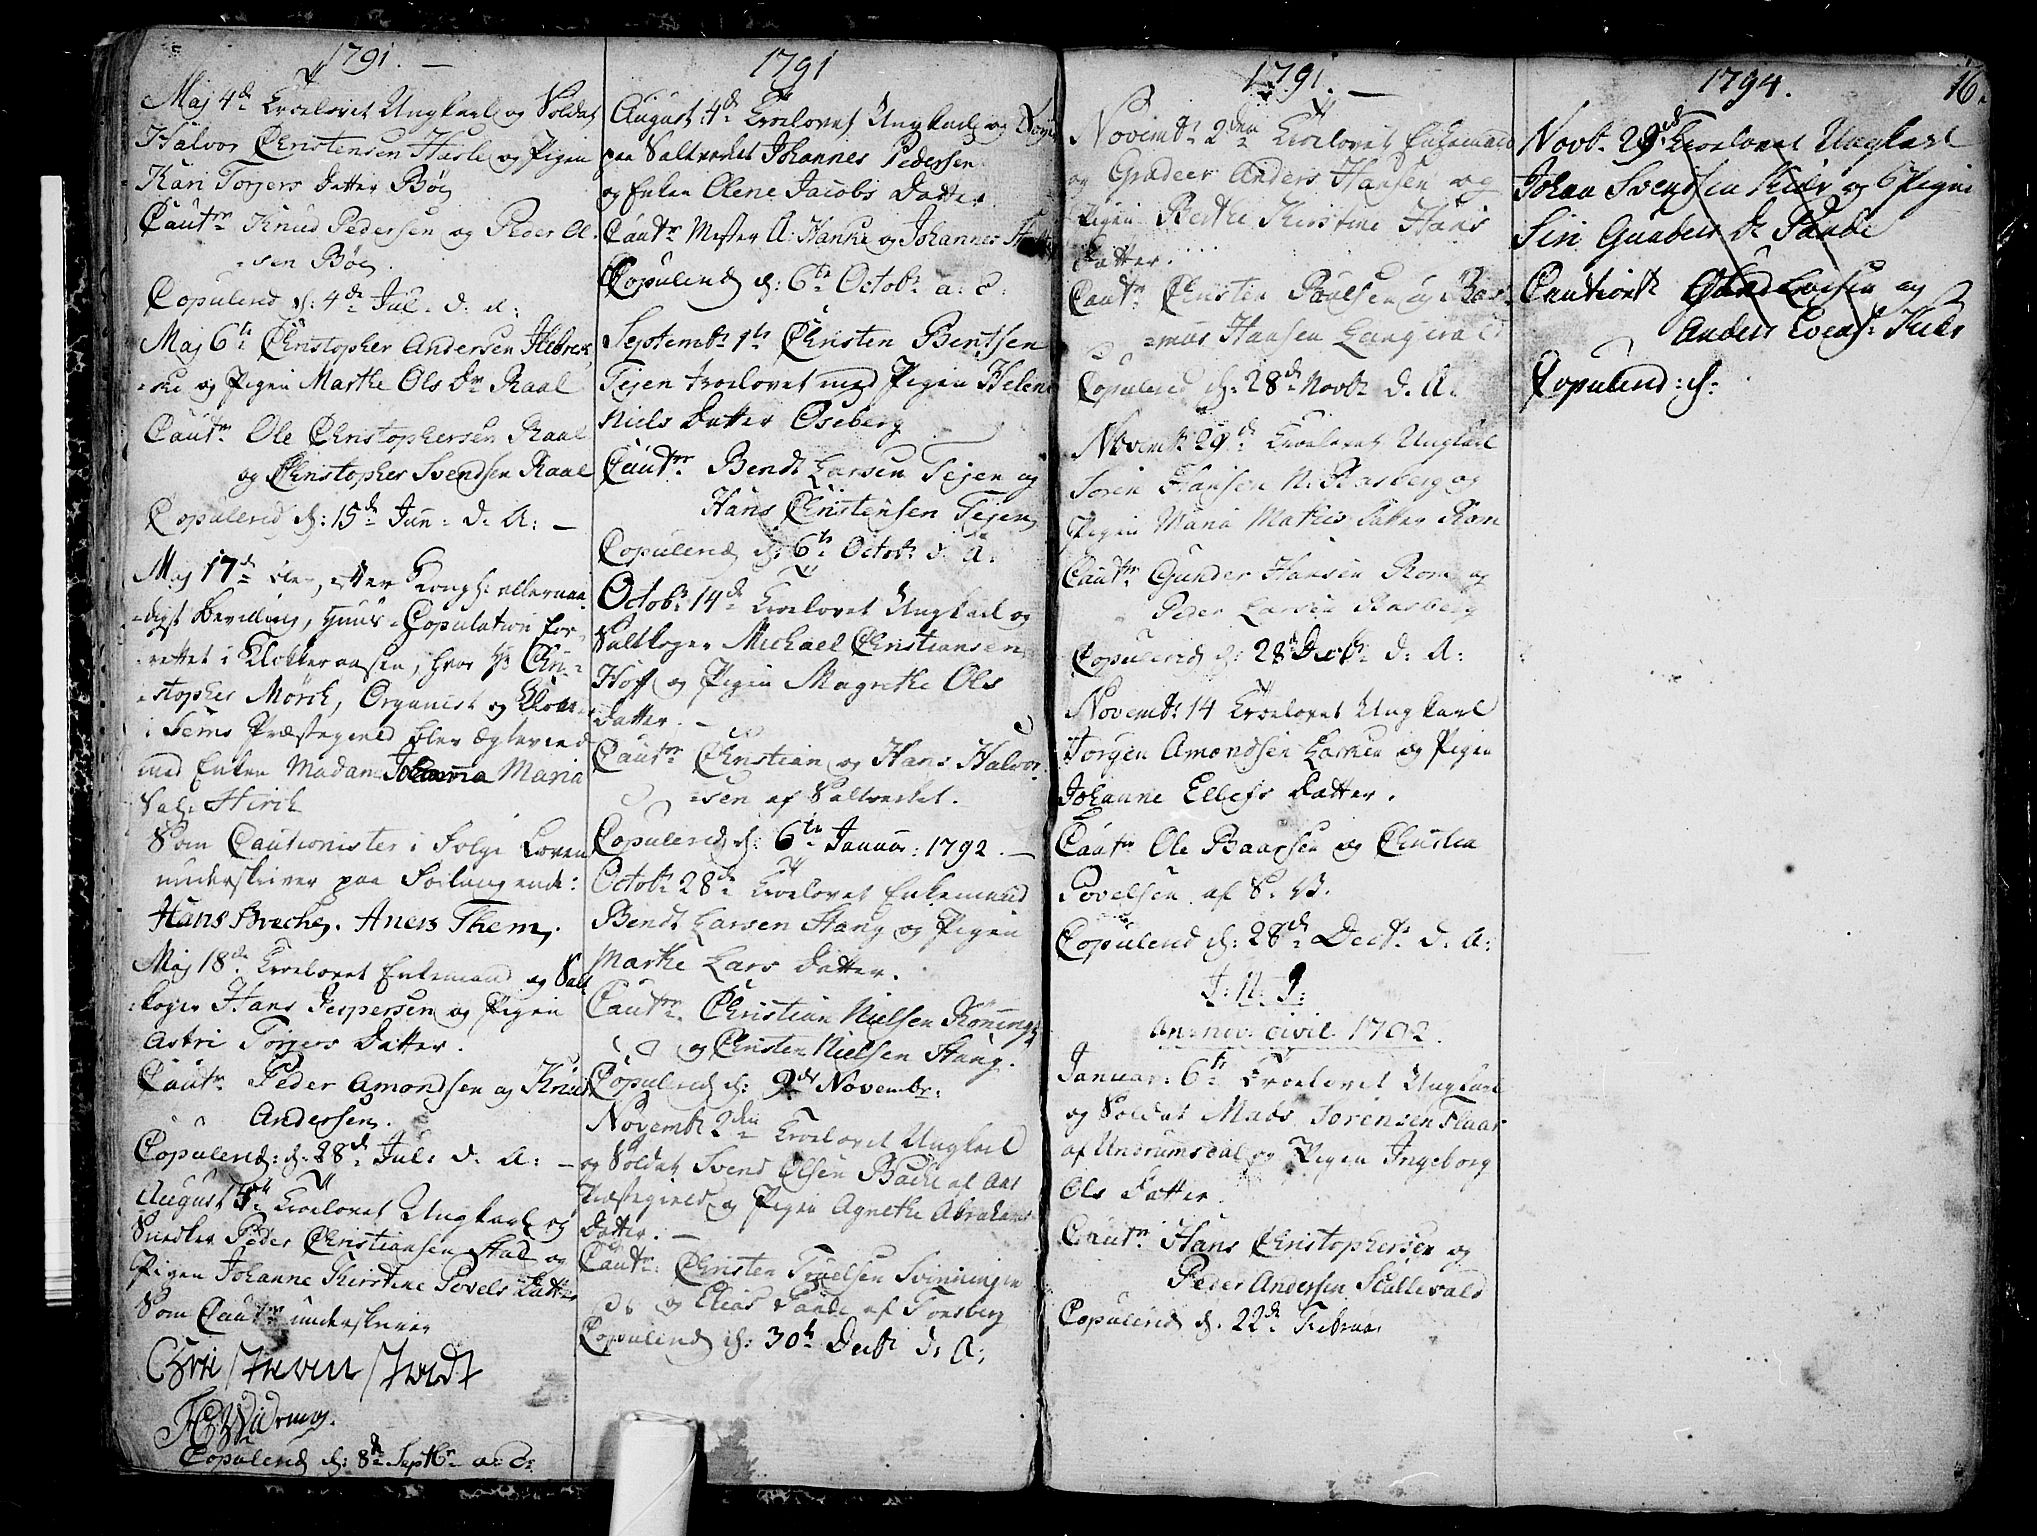 1791.
Maj 4de troelovet Ungkarl og Soldat
Halvor Christensen Hasle og Pigen
Kari Torgers Datter Bøe
Cautr Knud Pedersen og Peder Ol-
-sen Bøe.
Copulered d: 4de Jul. d. A:
Maj 6te Christopher Andersen
og Pigen Marthe Ols Dr Raael
Cautr Ole Christophersen Raael
og Christopher Svendsen Raael
Copulered d: 15de Jun: d. A: —
Maj 17de blev, efter Kongl: allernaa-
-digst Bevilling, Huus-Copulation for-
-rettet i Klokkeraasen, hvor Hr Chri-
-stopher Mörch, Organist og Klokker
i Sems Præstegield blev ægteviet
med Enken Madam Johanna Maria
Sal: Hirch
Som Cautionister i Følge Loven
underskriver paa Forlangende:
Hans Breche. Aners Them.
Maj 18de troelovet Enkemand og Salt-
-koger Hans Jespersen og Pigen
Astri Torgers Datter.
Cautr Peder Amondsen og Knud
Andersen.
Copulered: d: 28de Jul: d. A: —
August troelovet Ungkarl og
Snedker Peder Christiansen Stad og
Pigen Johanne Kirstine Povels Datter
Som Cautr underskriver
Christian Stadt
Copulered d: 8de Septbr a: c:
1791
August 4de troelovet Ungkarl og
paa Saltverket Johannes Pedersen
og Enken Olene Jacobs Datter
Cautr Mester A: Hanke og Johannes
Copulered d: 6te Octobr a: c:
Septembr 1te Christen Bentsen
Tejen troelovet med Pigen Helene
Niels Datter Oseberg
Cautr Bendt Larsen Tejen og
Hans Christensen Tejen
Copulered d: 6te Octobr d. A:
Octobr 14de troelovet Ungkarl og
Saltkoger Michael Christiansen
Hoff og Pigen Magrethe Ols
Datter. —
Cautr Christian og Hans Halvor-
-sen af Saltverket.
Copulered d: 6te Januar: 1792. —
Octobr 28de troelovet Enkemand
Bendt Larsen Stang og Pigen
Marthe Lars Datter.
Cautr. Christian Nielsen
og Christen Nielsen Stang.
Copulered d: 9de Novembr:
Novembr 2den troelovet Ungkarl
og Soldat Svend Olsen Bache af
Præstegield og Pigen Agnethe Abrahams
Datter. —
Cautr: Christen Truelsen Svinningen
og Elias Paabe af Tonsberg
Copulered d: 30te Decbr d. A:
1791. —
Novembr 2den troelovet Enkemand
og Gradeer Anders Hansen og
Pigen Berthe Kirstine Hans
Datter.
Cautr Christen Poulsen og Ras-
-mus Hansen
Copulered d: 28de Novbr d. A:
Novembr troelovet Ungkarl
Søren Hansen N: Rasberg og
Pigen Maria Mathis Datter Rom
Cautr Gunder Hansen Rom og
Peder Larsen Rasberg
Copulered d: 28de Decbr d: A:
Novembr 14 troelovet Ungkarl
Jørgen Amondsen og Pigen
Johanne Ellefs Datter.
Cautr Ole Baarsen og Christen
Povelsen af S. V.
Copulered d: 28de Decbr d. A:
J: N: J:
An: nov: civil 1792.
Januar: 6te troelovet Ungkarl
og Soldat Mads Sørensen
af Undrumsdal og Pigen Ingeborg
Ols Datter.
Cautr Hans Christophersen og
Peder Andersen Skallevald
Copulered d. 22de Februar
1794.
16.
Novbr 29de troelovet Ungkarl
Johan Svendsen og Pigen
Siri Gunders Dr Paabe
Cautionr og
Anders
Copulered: d: